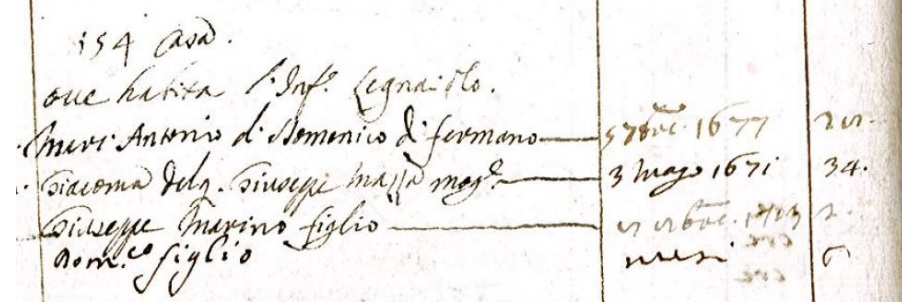 154 Casa.
oue habita l'Inf.o Legnaiolo.
Marc'Antonio di Domenico di fermano 5 7bre 1677
Giacoma del q. Giuseppe Mazza mog.e 3 Mago 1671 34.
Giuseppe Marino figlio
Dom.co figlio mesi 6